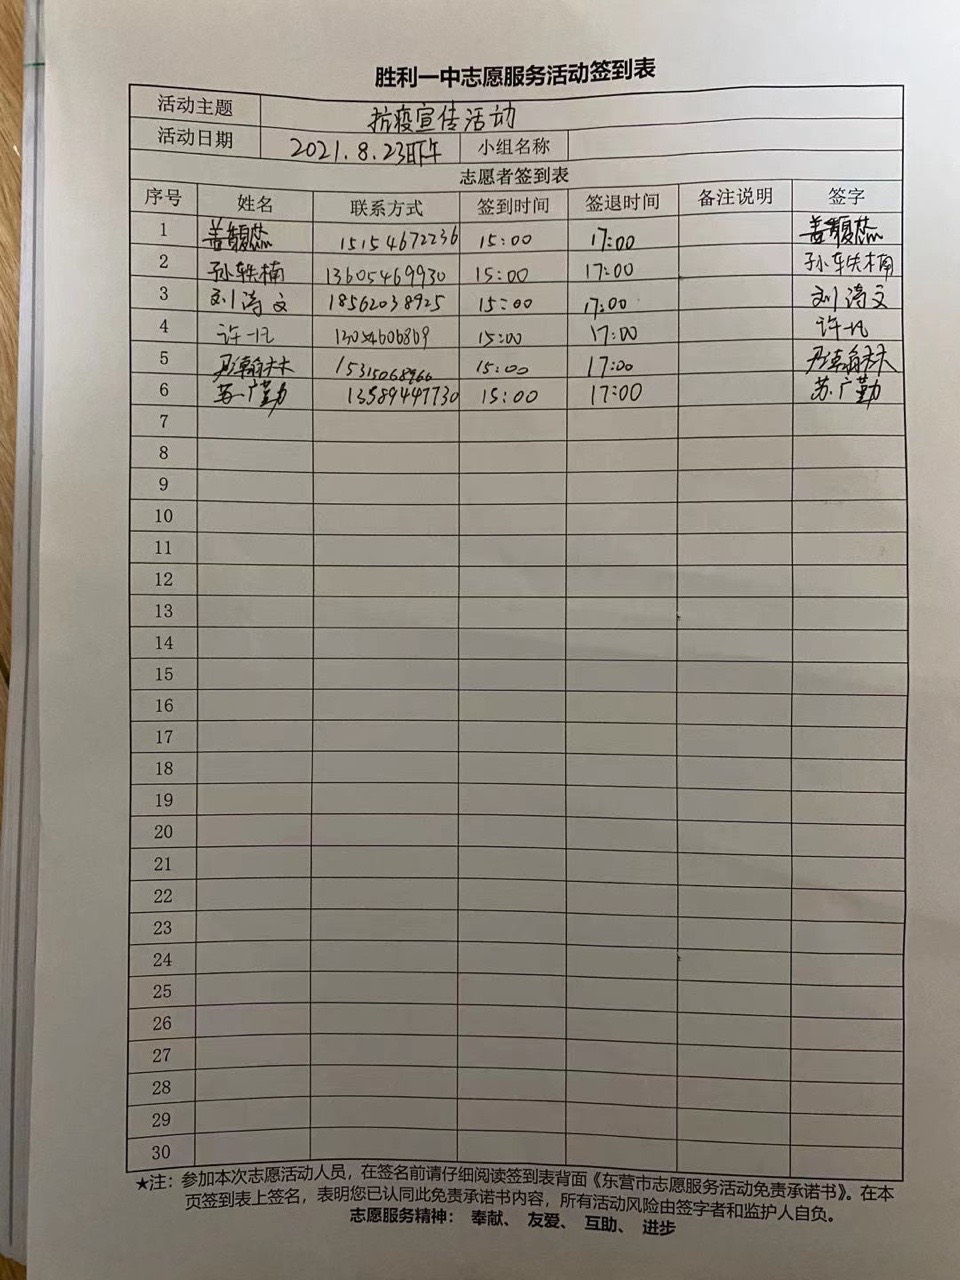 胜利一中志愿服务活动签到表
活动主题 抗疫宣传活动
活动日期 2021.8.23下午 小组名称
志愿者签到表
序号 姓名 联系方式 签到时间 签退时间 备注说明 签字
1 15154672236 15:00 17:00
2 孙轶楠 13605469930 15:00 17:00 孙轶楠
3 刘涛文 18562038925 15:00 17:00 刘涛文
4 许一凡 15:00 17:00 许一凡
5 15315068966 15:00 17:00
6 苏广勤 13589447730 15:00 17:00 苏广勤
7
8
9
10
11
12
13
14
15
16
17
18
19
20
21
22
23
24
25
26
27
28
29
30
★注：参加本次志愿活动人员，在签名前请仔细阅读签到表背面《东营市志愿服务活动免责承诺书》。在本
页签到表上签名，表明您已认同此免责承诺书内容，所有活动风险由签字者和监护人自负。
志愿服务精神： 奉献、 友爱、 互助、 进步